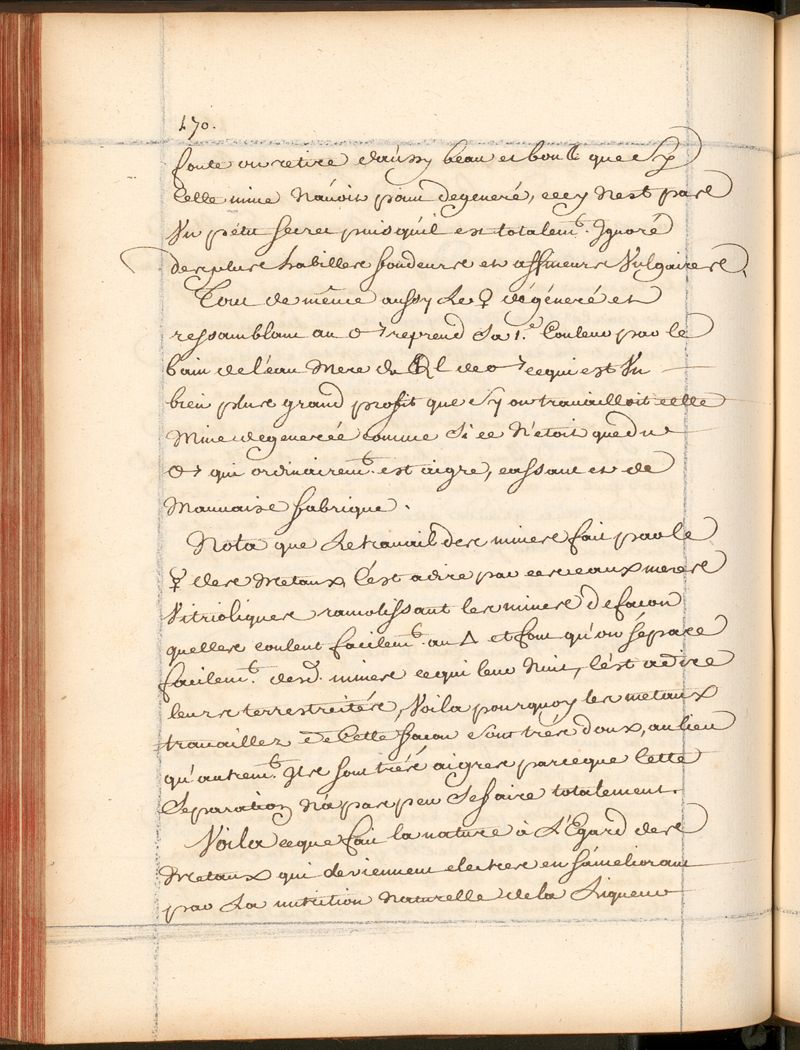 170.
fonte on retire d'aussy beau et bon ♃ que sy
Cette mine N'avoit point degeneré, cecy N'est pas
Un petit secret puisquil est totalemt. Ignoré
des plus habilles fondeurs et affineurs Vulgaires.
Tout de même aussy Le ♀ dégéneré et
ressamblant au ♂ reprend Sa 1.e Couleur par le
bain de l'eau Mere du l de ♂ ce qui est Un
bien plus grand profit que sy on travailloit cette
Mine degenerée comme Si ce N'étoit que du
♂ qui ordinairemt. est aigre, cassant et de
Mauvaise fabrique.
Nota que Le travail des mines fait par le
☿ des Metaux, C'est a dire par ces eaux meres
Vitrioliques ramolissant les mines de facon
quelles coulent facilemt. au △ et font qu'on sépare
facilemt. desd. mines ce qui leur Nuit, C'est a dire
leurs terrestreités, Voila pourquoy les metaux
travaillez de Cette facon sont trés doux, au lieu
qu'autremt. Ils sont trés aigres parceque Cette
Separation N'a pas peu Se faire totalement.
Voila ce que fait la nature à L'Egard des
Metaux qui deviennent electres en s'ameliorant
par La nutrition Naturelle de la Liqueur